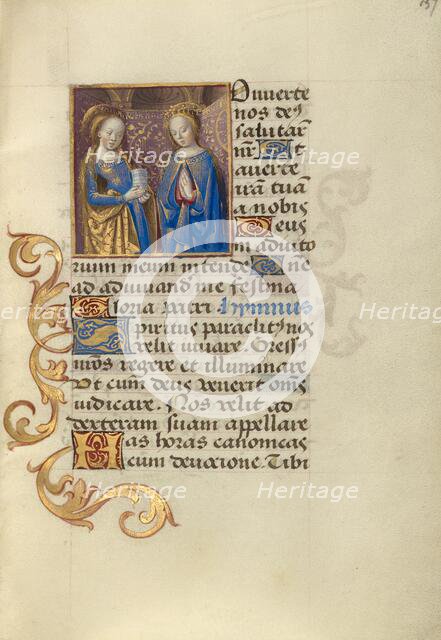 157
Onuerte
nos de9
salutar
nr̄ Et
auerte
irā tuā
a nobis
Deus
in adiuto
rium meum intende Do ne
ad adiuuand me festina
Gloria patri Hymnus
Spiritus paraclit9 nos
velit iuuare. Gress9
nr̄os regere et illuminare
Vt cum deus venerit om̄s
iudicare. Nos velit ad
dexteram suam appellare
Has horas canonicas
cum deuocione. Tibi
Heritage
Heritage
Heritage
Heritage
Heritage
Heritage
Heritage